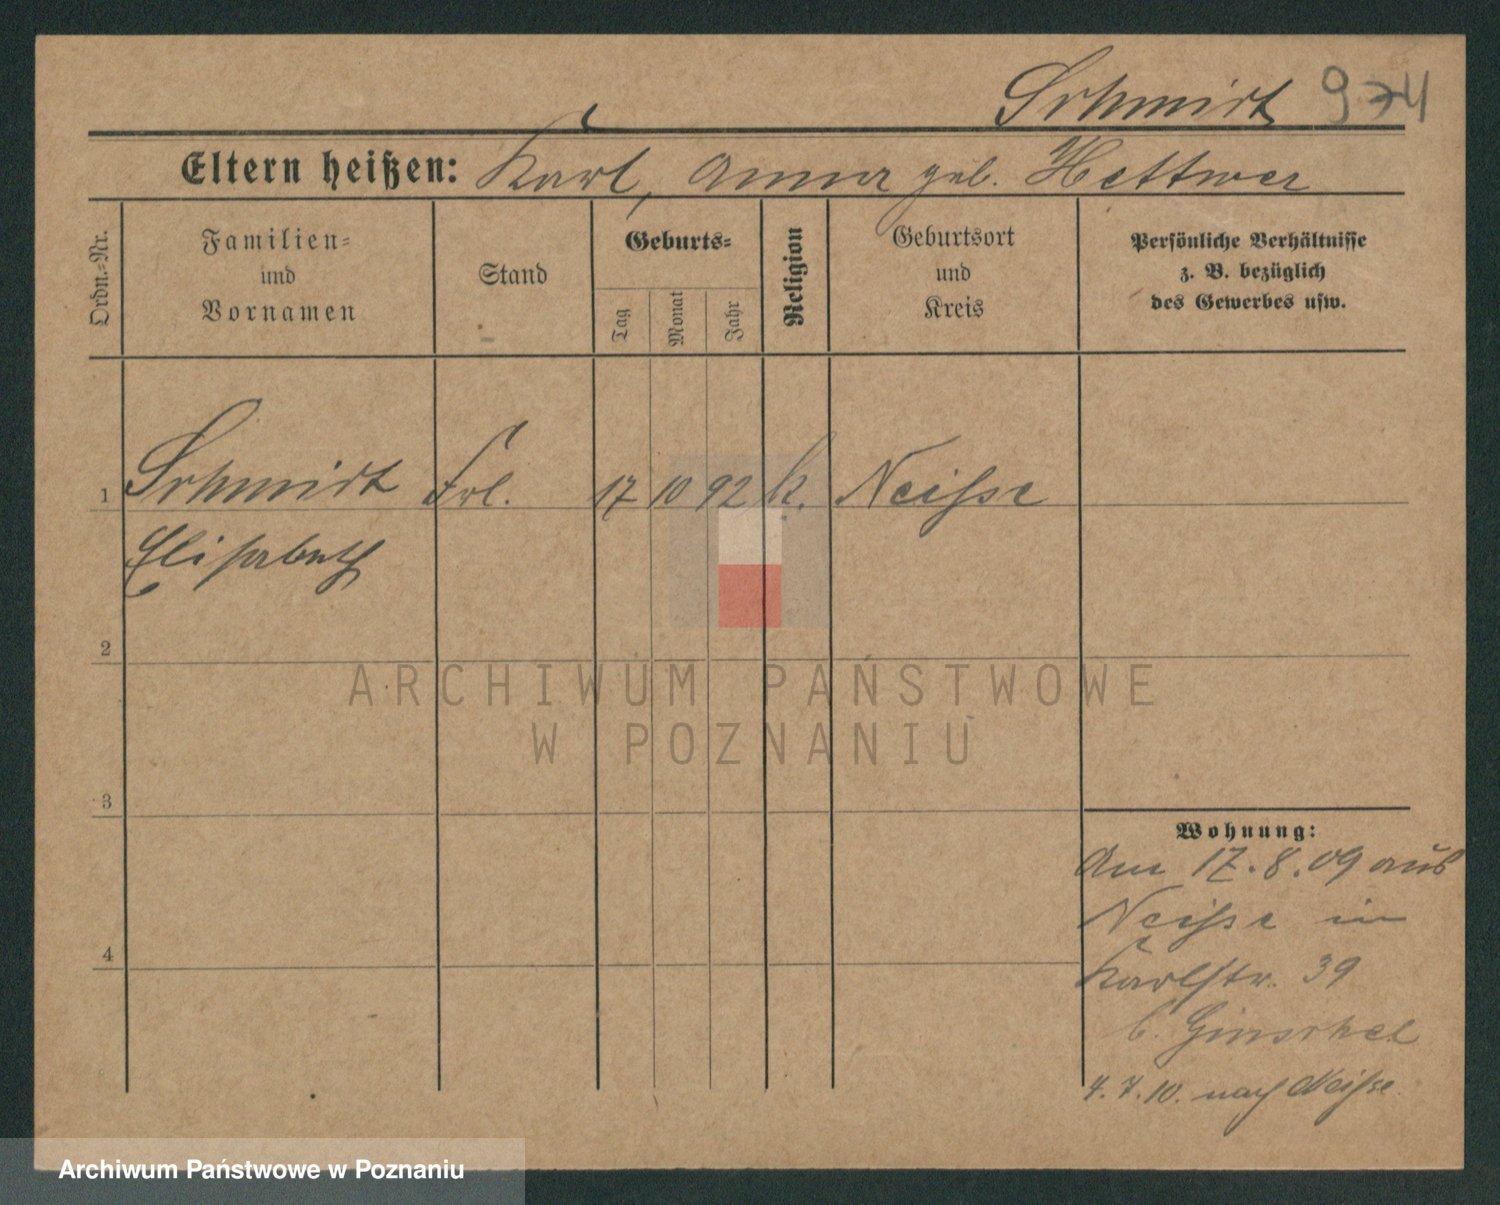 Schmidt 974
Eltern heißen: Karl, Anna geb. Hettwer
Ordn.=Nr.
Familien=
und
Vornamen
Stand
Geburts=
Tag
Monat
Jahr
Religion
Geburtsort
und
Kreis
Persönliche Verhältnisse
z. B. bezüglich
des Gewerbes usw.
1 Schmidt Frl. 17 10 92 k. Neisse
Elisabeth
2
3
4
Wohnung:
Am 17.8.09 aus
Neisse in
Karlstr. 39
b. Ginschel
4.7.10. nach Neisse.
ARCHIWUM PAŃSTWOWE
W POZNANIU
Archiwum Państwowe w Poznaniu